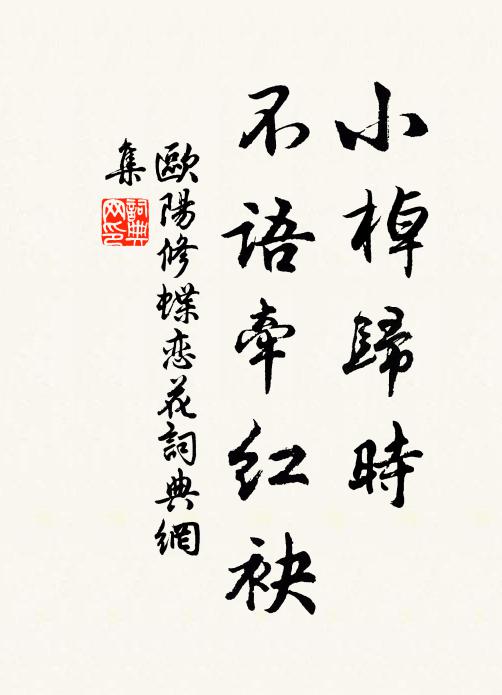 小棹歸時
不語牽紅袂
歐陽修蝶恋花詞典網
集
詞典网印